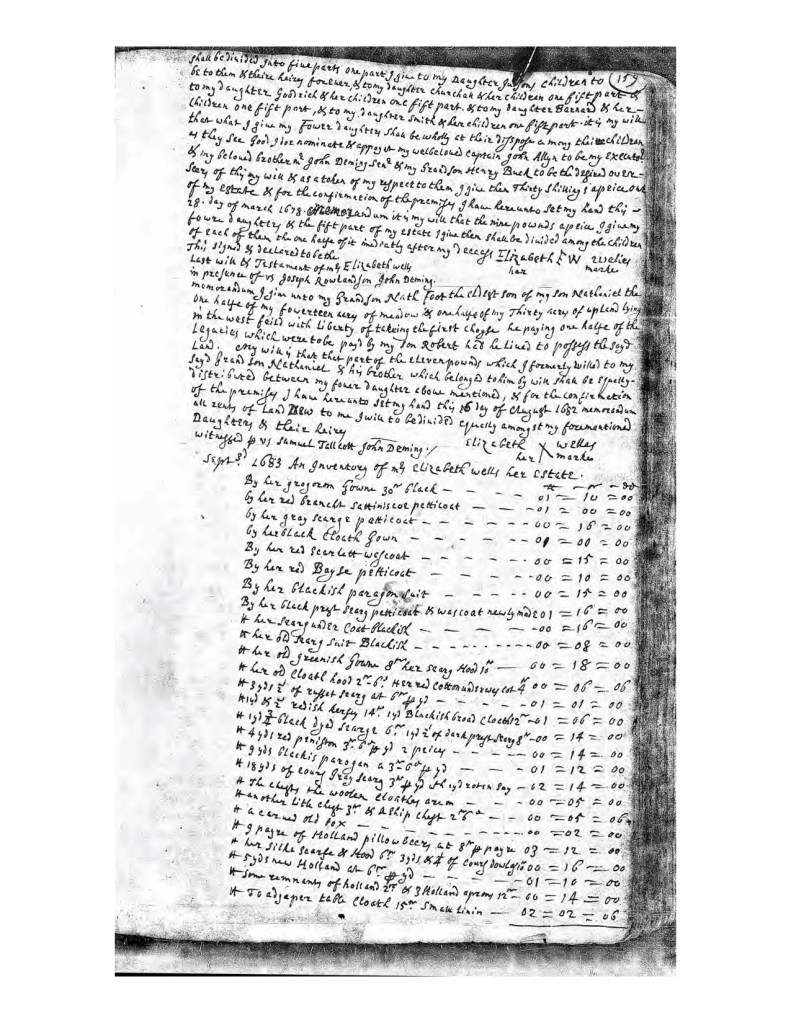 shall be divided into five parts one part I give to my Daughter children to 159
be to them & theire heires for ever, & to my daughter churchat & her children one fift part &
to my daughter Goodrich & her children one fift part. & to my Daughter Barnard & her
Children one fift part, & to my daughter Smith & her children one fift part. it is my will
that what I give my Fower daughters shall be wholly at their disspose among their children
as they see Good. I doe nominate & appoynt my welbeloved Captain John Allyn to be my Executor
& my beloved brother mr John Deming Senr & my Grandson Henry Buck to be the desired over-
seers of this my will & as a token of my respect to them I give them Thirty shillings apeice out
of my estate & for the confirmation of the premises I have hereunto set my hand this
28. day of march 1678. Memorandum it is my will that the nine pownds apeice I give my
fowre daughters & the fift part of my estate I give them shall be divided among the children
of each of them the one halfe of it imediatly after my decess Elizabeth W Welles
This signed & declared to be the her marke
Last will & Testament of mrs Elizabeth wells
in presence of vs Joseph Rowlandson John Deming.
memorandum I give unto my Grandson Nath Foot the eldest son of my son Nathaniel the
one halfe of my fowerteen acres of meadow & one halfe of my Thirty acres of upland lying
in the west feild with Liberty of takeing the first choyse he paying one halfe of the
Legacies which were to be payd by my son Robert had he lived to possess the sayd
Land. my will is that that part of the eleven pownds which I formerly willed to my
sayd Grandson Nathaniel & his brother which belonged to him by will shall be equally
distributed between my fower daughters above mentioned, & for the confirmation
of the premises I have hereunto set my hand this 16 day of August 1682 memorandum
all rents of Land Dew to me I will to be divided equally amongst my forementioned
Daughters & their heires Elizabeth X welles
witnessed p vs Samuel Tallcott John Deming. her marke
Sept. 3d 1683 An Inventory of mrs Elizabeth wells her Estate.
By her grogorom Gowne 30s black — 01 = 10 = 00
by her red brancht sattiniscoe petticoat — 01 = 00 = 00
by her gray searge petticoat — 00 = 16 = 00
by her black cloath Gown — 01 = 00 = 00
By her red scarlett wascoat — 00 = 15 = 00
By her red Bayse petticoat — 00 = 10 = 00
By her blackish paragon suit — 00 = 15 = 00
By her black prest searg petticoat & wascoat newly made 01 = 16 = 00
It her searg under Coat blackish — 00 = 16 = 00
It her old searg suit Blackish — 00 = 08 = 00
It her old greenish Gowne 8s her searg Hood 10s — 00 = 18 = 00
It her old cloath hood 2s 6d Her red Cotton under coat 4s 00 = 06 = 06
It 3 yds ½ of russet searg at 6s p yd — 01 = 01 = 00
It 1 yd & ½ redish kersy 14s. 1 yd Blackish broad Cloath 12s — 01 = 06 = 00
It 1 yd ¾ black dyed searge 6s 1 yd ½ of dark prest searg 8s — 00 = 14 = 00
It 4 yds red peniston 3s 6d p yd 2 peices — 00 = 14 = 00
It 9 yds blackis paragon a 3s 6d p yd — 01 = 12 = 00
It 18 yds of cours Gray searg 3s p yd It 1 yd roten say — 02 = 14 = 00
It The chests the woolen cloathes are in — 00 = 05 = 00
It another lith chest 3s & A ship chest 2s 6d — 00 = 05 = 06
It a carved old box — 00 = 02 = 00
It 9 payre of Holland pillow beers at 8s p payre 03 = 12 = 00
It her silke scarfe & Hood 6s 3 yds & ¼ of cours dowlas 10 00 = 16 = 00
It 5 yds new Holland at 6s p yd — 01 = 10 = 00
It some remnants of holland 2s & 3 Holland aprons 12s — 00 = 14 = 00
It To a djaper table Cloath 15s small linin — 02 = 02 = 06